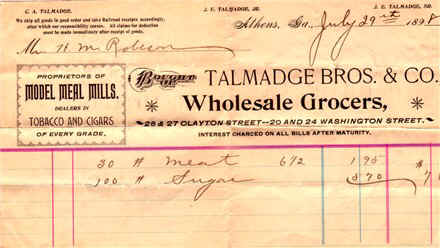 C. A. TALMADGE. J. E. TALMADGE, JR. J. E. TALMADGE, SR.
We ship all goods in good order and take Railroad receipts accordingly,
after which our responsibility ceases. All claims for deduction
must be made immediately after receipt of goods.
Athens, Ga., July 29th 1898
Mr H M Robison
PROPRIETORS OF
MODEL MEAL MILLS.
DEALERS IN
TOBACCO AND CIGARS
OF EVERY GRADE.
BOUGHT OF
TALMADGE BROS. & CO.
Wholesale Grocers,
26 & 27 CLAYTON STREET—20 AND 24 WASHINGTON STREET.
INTEREST CHARGED ON ALL BILLS AFTER MATURITY.
30 # Meat 6 1/2 1 95
100 # Sugar 5 70 7